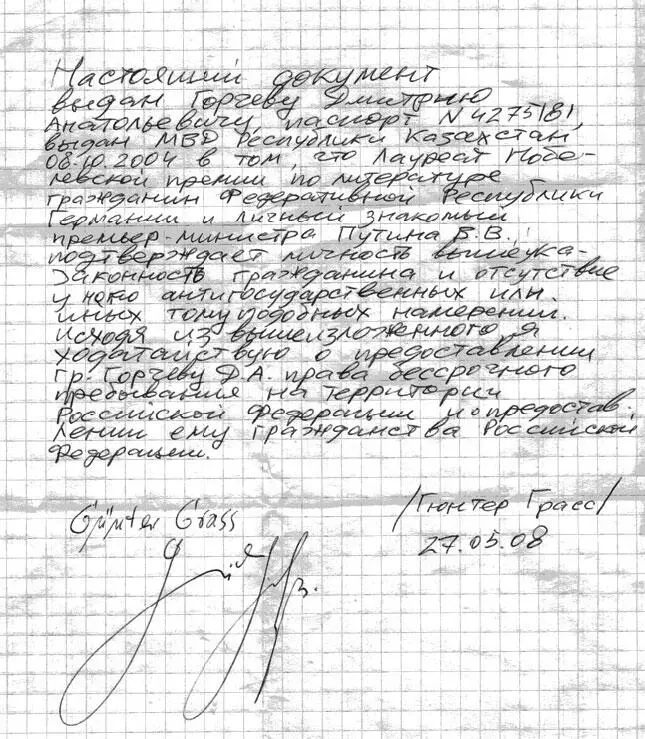 Настоящий документ
выдан Горчеву Дмитрию
Анатольевичу, паспорт N4275181,
выдан МВД Республики Казахстан,
08.10.2004 в том, что Лауреат Нобе-
левской премии по литературе
гражданин Федеративной Республики
Германии и личный знакомый
премьер-министра Путина В.В.,
подтверждает личность вышеука-
законность гражданина и отсутствие
у него антигосударственных или
иных тому подобных намерений.
Исходя из вышеизложенного я
ходатайствую о предоставлении
гр. Горчеву Д.А. права бессрочного
пребывания на территории
Российской Федерации и о предостав-
лении ему гражданства Российской
Федерации.
Günter Grass
/Гюнтер Грасс/
27.05.08